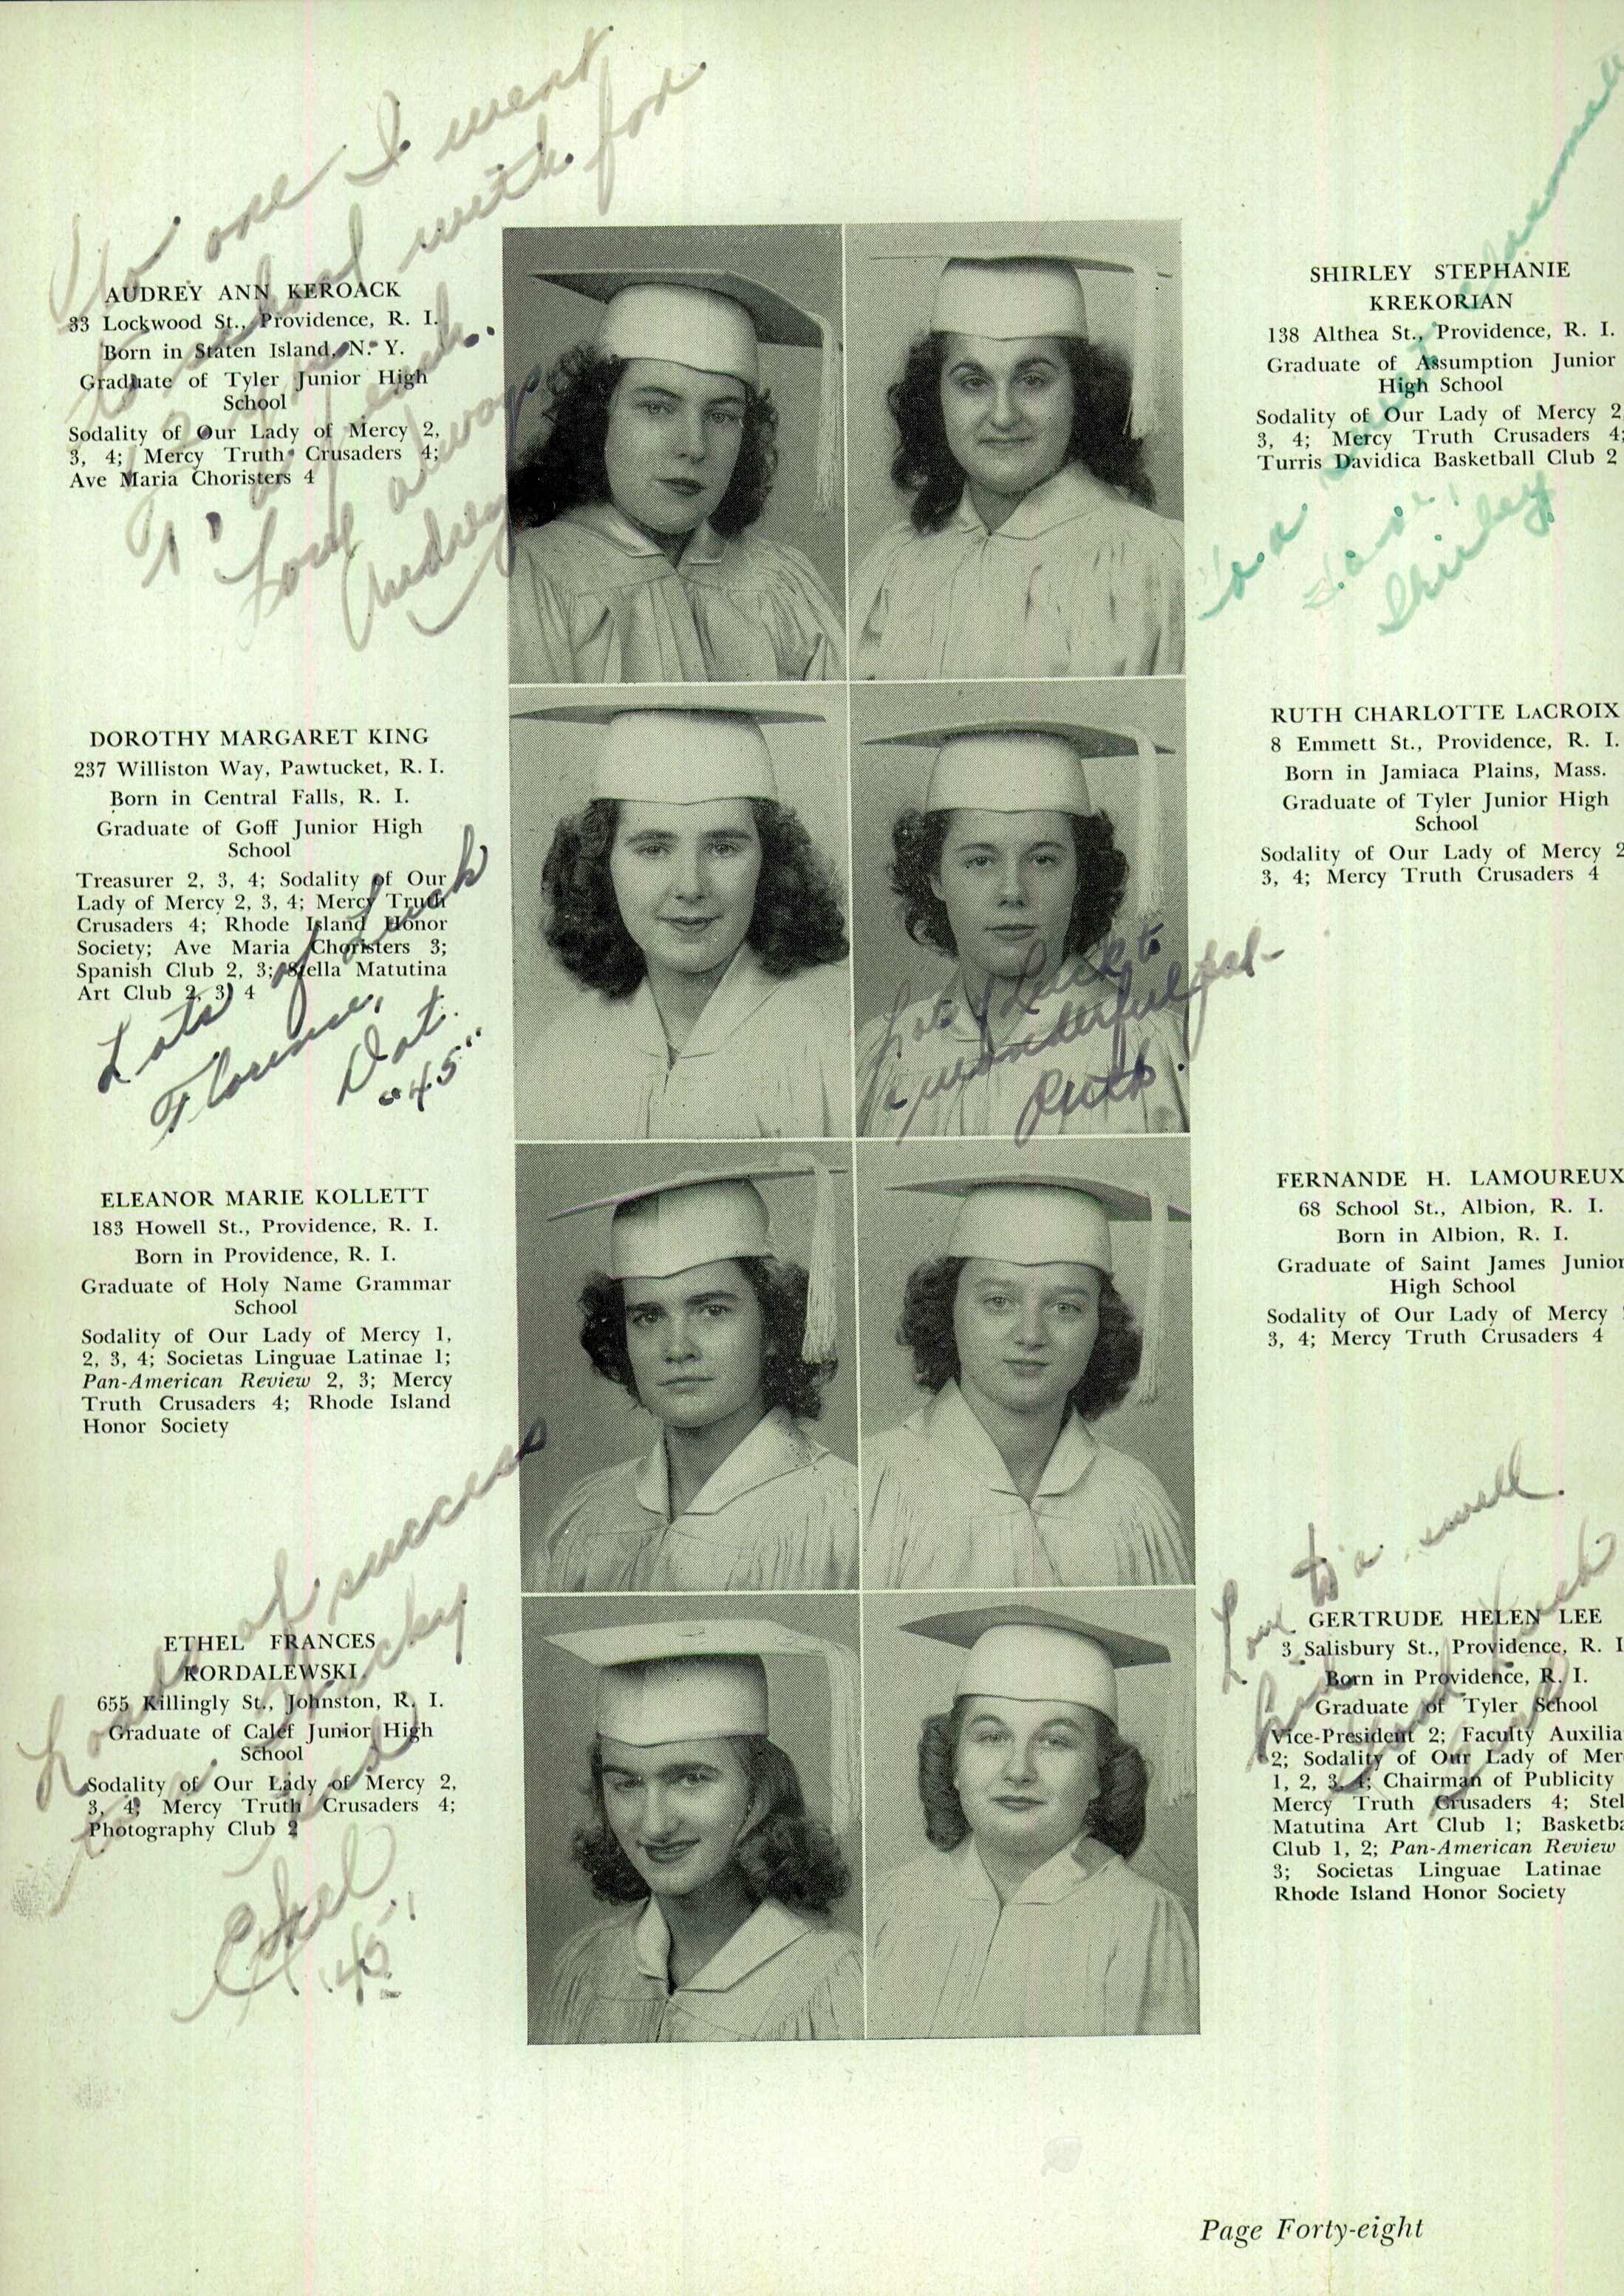 To one I went
to school with for
years.
Love always
Audrey
AUDREY ANN KEROACK
33 Lockwood St., Providence, R. I.
Born in Staten Island, N. Y.
Graduate of Tyler Junior High
School
Sodality of Our Lady of Mercy 2,
3, 4; Mercy Truth Crusaders 4;
Ave Maria Choristers 4
DOROTHY MARGARET KING
237 Williston Way, Pawtucket, R. I.
Born in Central Falls, R. I.
Graduate of Goff Junior High
School
Treasurer 2, 3, 4; Sodality of Our
Lady of Mercy 2, 3, 4; Mercy Truth
Crusaders 4; Rhode Island Honor
Society; Ave Maria Choristers 3;
Spanish Club 2, 3; Stella Matutina
Art Club 2, 3, 4
Lots of Luck
Florence,
Dot.
"45"
ELEANOR MARIE KOLLETT
183 Howell St., Providence, R. I.
Born in Providence, R. I.
Graduate of Holy Name Grammar
School
Sodality of Our Lady of Mercy 1,
2, 3, 4; Societas Linguae Latinae 1;
Pan-American Review 2, 3; Mercy
Truth Crusaders 4; Rhode Island
Honor Society
Loads of success
to a lucky
Ethel
'45
ETHEL FRANCES
KORDALEWSKI
655 Killingly St., Johnston, R. I.
Graduate of Calef Junior High
School
Sodality of Our Lady of Mercy 2,
3, 4; Mercy Truth Crusaders 4;
Photography Club 2
SHIRLEY STEPHANIE
KREKORIAN
138 Althea St., Providence, R. I.
Graduate of Assumption Junior
High School
Sodality of Our Lady of Mercy 2
3, 4; Mercy Truth Crusaders 4;
Turris Davidica Basketball Club 2
To a
Shirley
RUTH CHARLOTTE LACROIX
8 Emmett St., Providence, R. I.
Born in Jamiaca Plains, Mass.
Graduate of Tyler Junior High
School
Sodality of Our Lady of Mercy 2
3, 4; Mercy Truth Crusaders 4
Lots of Luck to
a wonderful gal-
Ruth.
FERNANDE H. LAMOUREUX
68 School St., Albion, R. I.
Born in Albion, R. I.
Graduate of Saint James Junior
High School
Sodality of Our Lady of Mercy
3, 4; Mercy Truth Crusaders 4
Love to a swell
Luck
GERTRUDE HELEN LEE
3 Salisbury St., Providence, R. I
Born in Providence, R. I.
Graduate of Tyler School
Vice-President 2; Faculty Auxilia
2; Sodality of Our Lady of Mer
1, 2, 3, 4; Chairman of Publicity
Mercy Truth Crusaders 4; Stel
Matutina Art Club 1; Basketba
Club 1, 2; Pan-American Review
3; Societas Linguae Latinae
Rhode Island Honor Society
Page Forty-eight